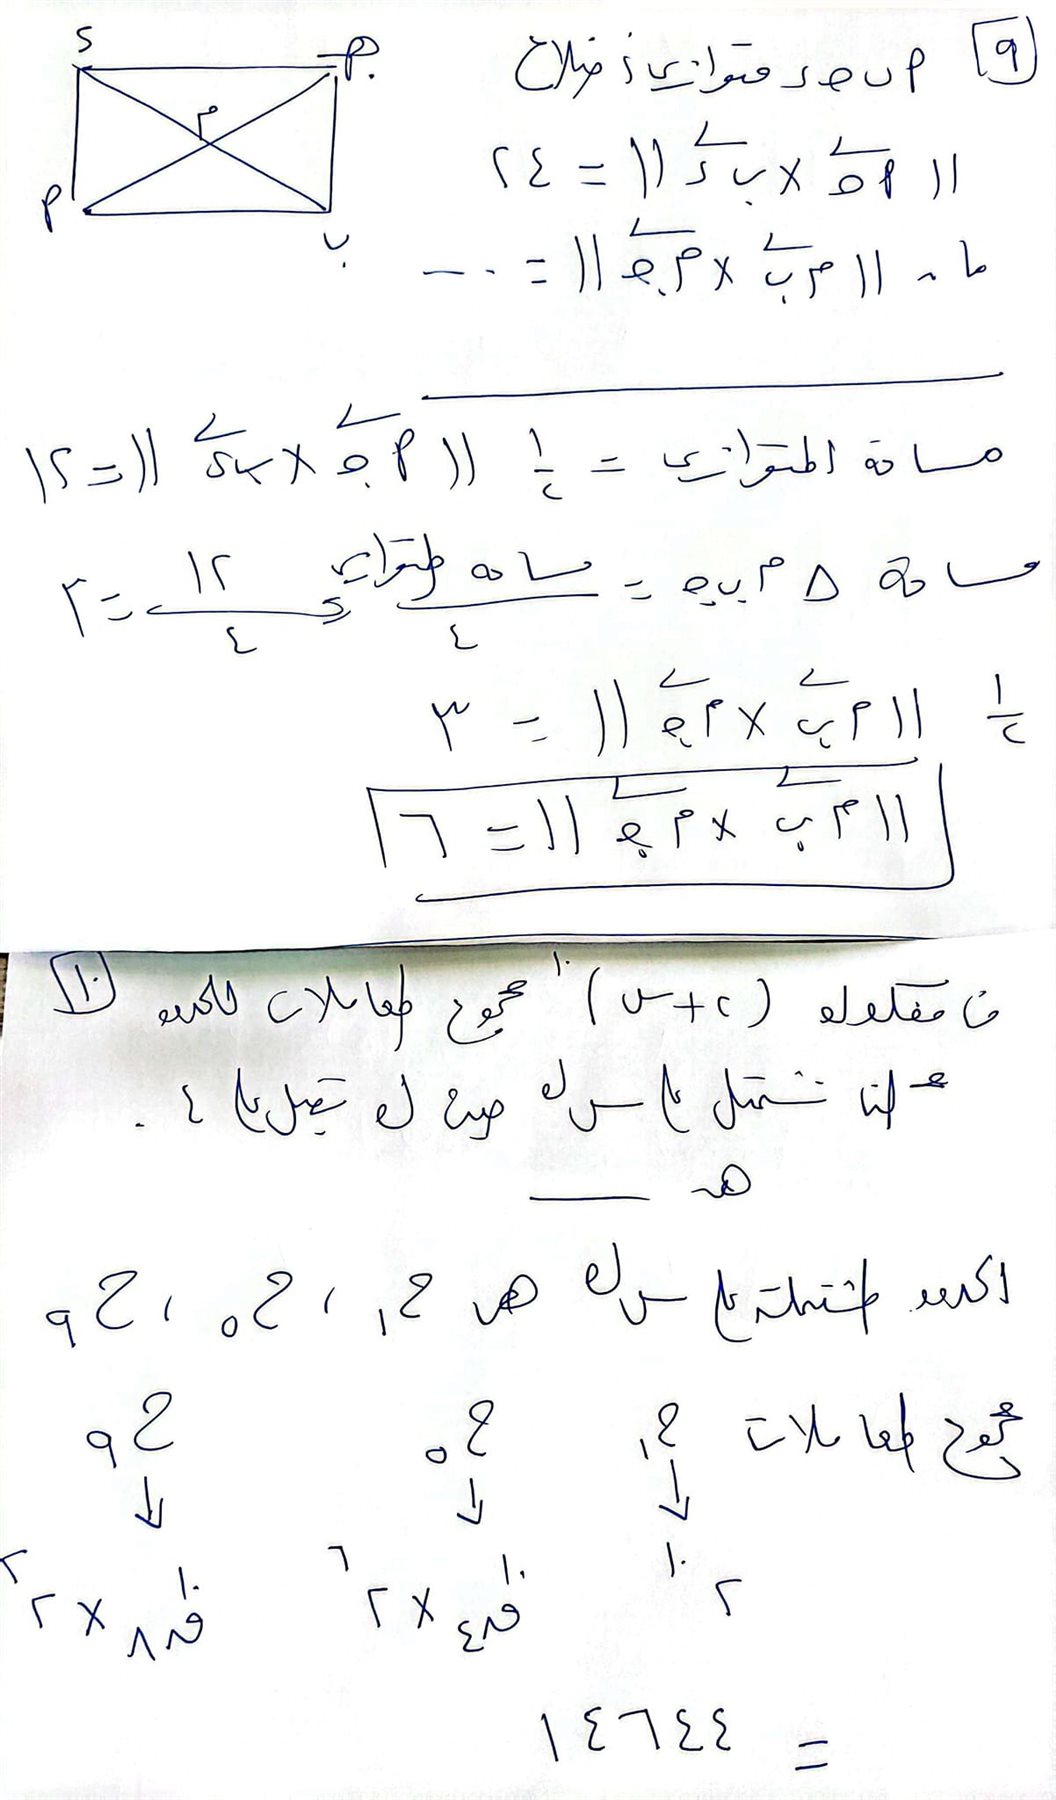 ٩ ا ب جـ د متوازى أضلاع
|| ا جـ × ب د || = ٢٤
فإن || م ب × م جـ || = ....
د جـ
م
ا ب
مساحة المتوازى = ١/٢ || ا جـ × ب د || = ١٢
مساحة Δ م ب جـ = مساحة المتوازى / ٤ = ١٢ / ٤ = ٣
١/٢ || م ب × م جـ || = ٣
|| م ب × م جـ || = ٦
١٠ فى مفكوك (٢ + س)^١٠ مجموع المعاملات للحدود
التى تشتمل على س^ك حيث ك تقبل على ٤ .
هى ـــــ
الحدود المشتملة على س^ك هى ح١ ، ح٥ ، ح٩
مجموع المعاملات ح١ ح٥ ح٩
↓ ↓ ↓
٢^١٠ ١٠ق٤ × ٢^٦ ١٠ق٨ × ٢^٢
= ١٤٦٤٤